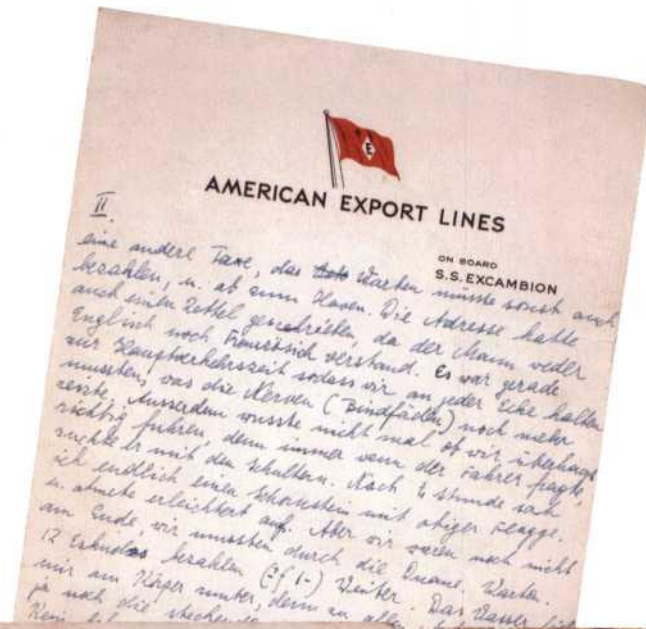 E
AMERICAN EXPORT LINES
ON BOARD
S.S. EXCAMBION
II.
eine andere Taxe, das Warten müsste sonst auch
bezahlen, u. ab zum Haven. Die Adresse hatte
auch einen Zettel geschrieben, da der Mann weder
Englisch noch Französich verstand. Es war gerade
zur Hauptverkehrszeit sodass wir an jeder Ecke halten
mussten, was die Nerven (Bindfäden) noch mehr
reizte. Ausserdem wusste nicht mal ob wir überhaupt
richtig fuhren, denn immer wenn der Fahrer fragte,
zuckte er mit den Schultern. Nach ½ Stunde sah
ich endlich einen Schornstein mit obiger Flagge.
u. atmete erleichtert auf. Aber wir waren noch nicht
am Ende, wir mussten durch die Duane. Warten.
12 Eskudos bezahlen Weiter. Das Wasser
mir am Körper runter, denn zu allem
ja noch die